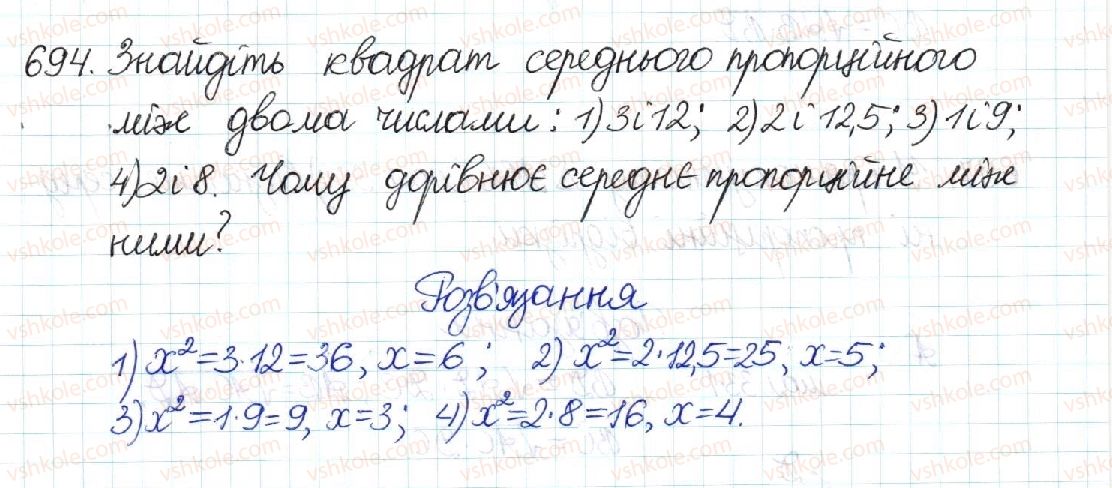 694. Знайдіть квадрат середнього пропорційного
між двома числами: 1) 3 і 12; 2) 2 і 12,5; 3) 1 і 9;
4) 2 і 8. Чому дорівнює середнє пропорційне між
ними?
Розв'язання
1) x² = 3·12 = 36, x = 6; 2) x² = 2·12,5 = 25, x = 5;
3) x² = 1·9 = 9, x = 3; 4) x² = 2·8 = 16, x = 4.